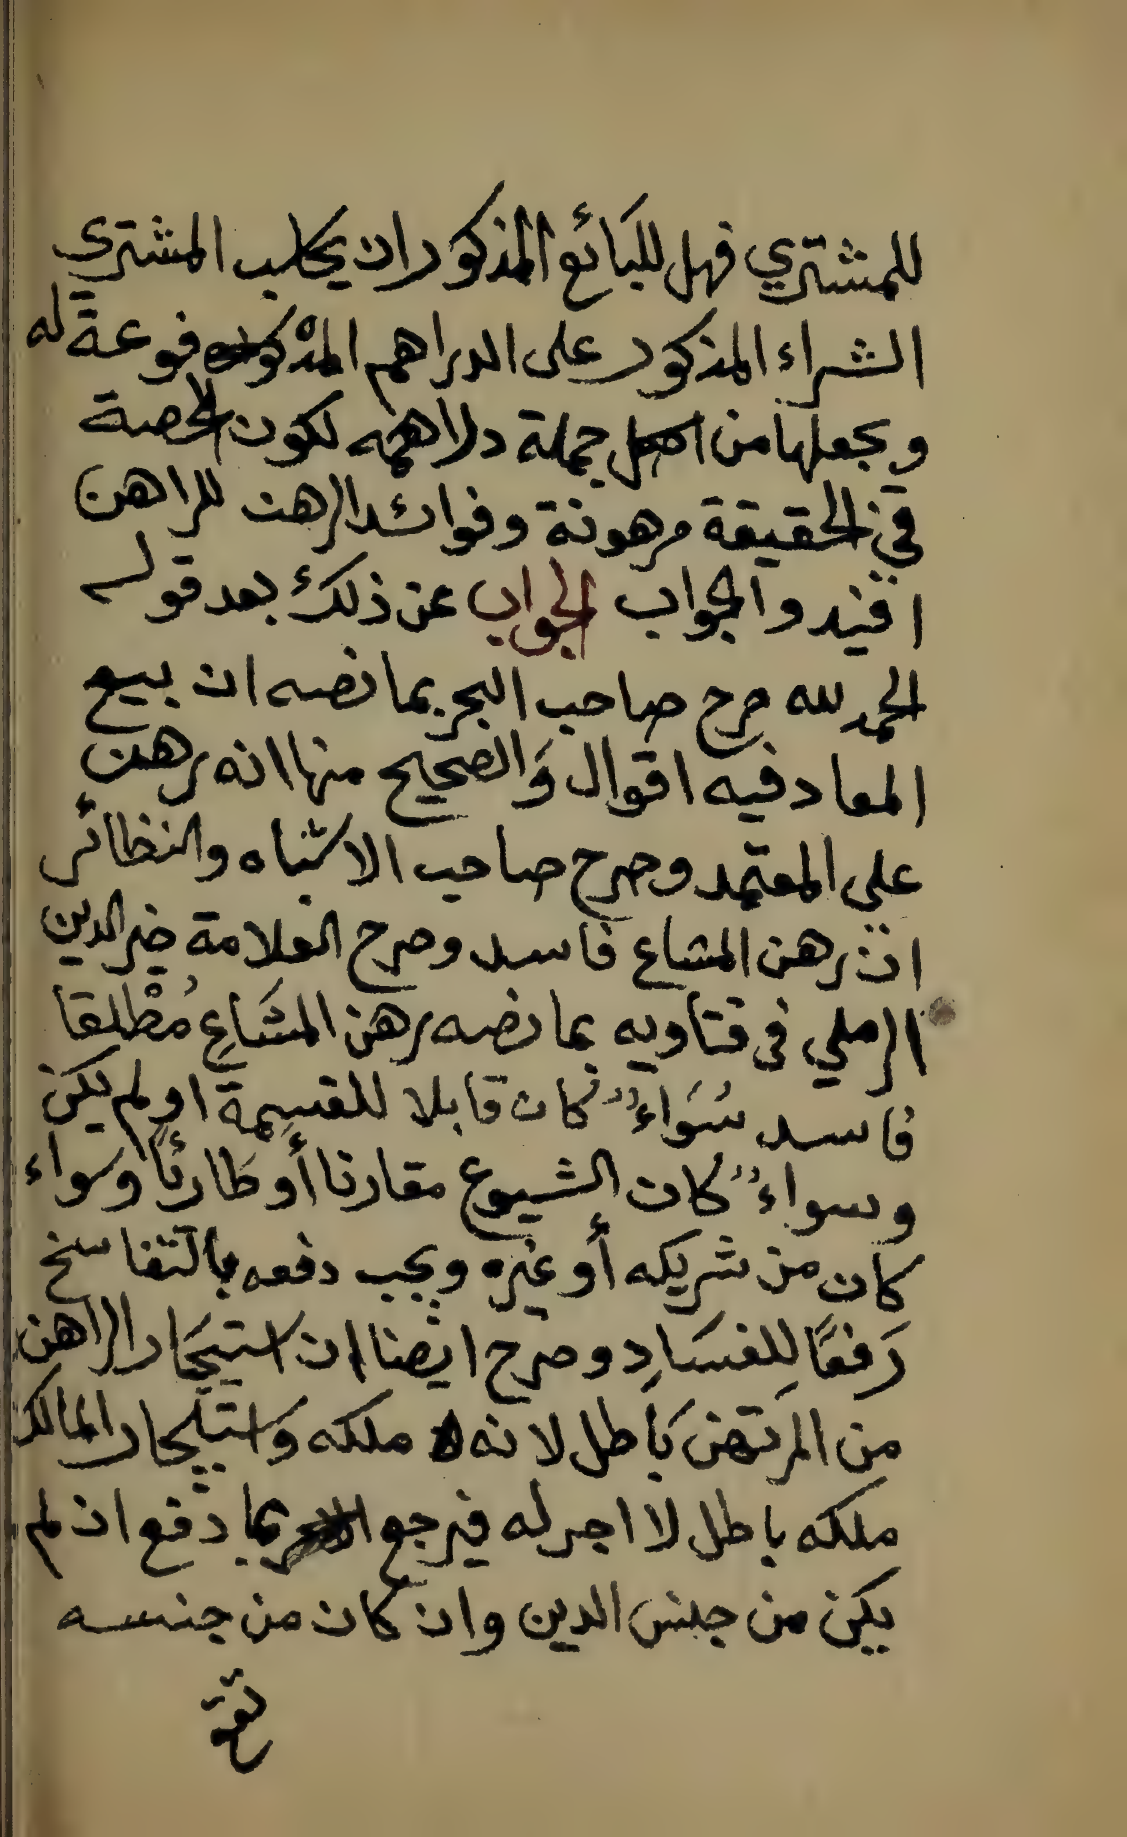 للمشتري فهل للبَائع المذكور ان يحاسب المشتري
الشراء المذكور على الدراهم المذكوره فوعة له
ويجعلها من اصل جملة دراهمه لكون الحصة
في الحقيقة مرهونة وفوائد الرهن للراهن
افيدوا الجواب الجواب عن ذلك بعد قوله
الحمد لله صرح صاحب البحر بما نصه ان بيع
المعاد فيه اقوال وَالصحيح منها انه رهن
على المعتمد وصرح صاحب الاشباه والنظائر
ان رهن المشاع فاسد وصرح العلامة خير الدين
الرملي في فتاويه بما نصه رهن المشَاعِ مُطْلقا
فاسد سَوَاءٌ كان قابلا للقسِمة او لم يكن
وسواءٌ كان الشيوع مقارنا أو طارئا وسواء
كان من شريكه أو غيره ويجب دفعه بالتفاسخ
رَفعًا لِلفسَادِ وصرح ايضا ان استيجَار الراهن
من المرتهن بَاطل لانه ملكه وَاستيجار المالك
ملكه باطل لا اجر له فيرجع بما دفع ان لم
يكن من جنس الدين وان كان من جنسه